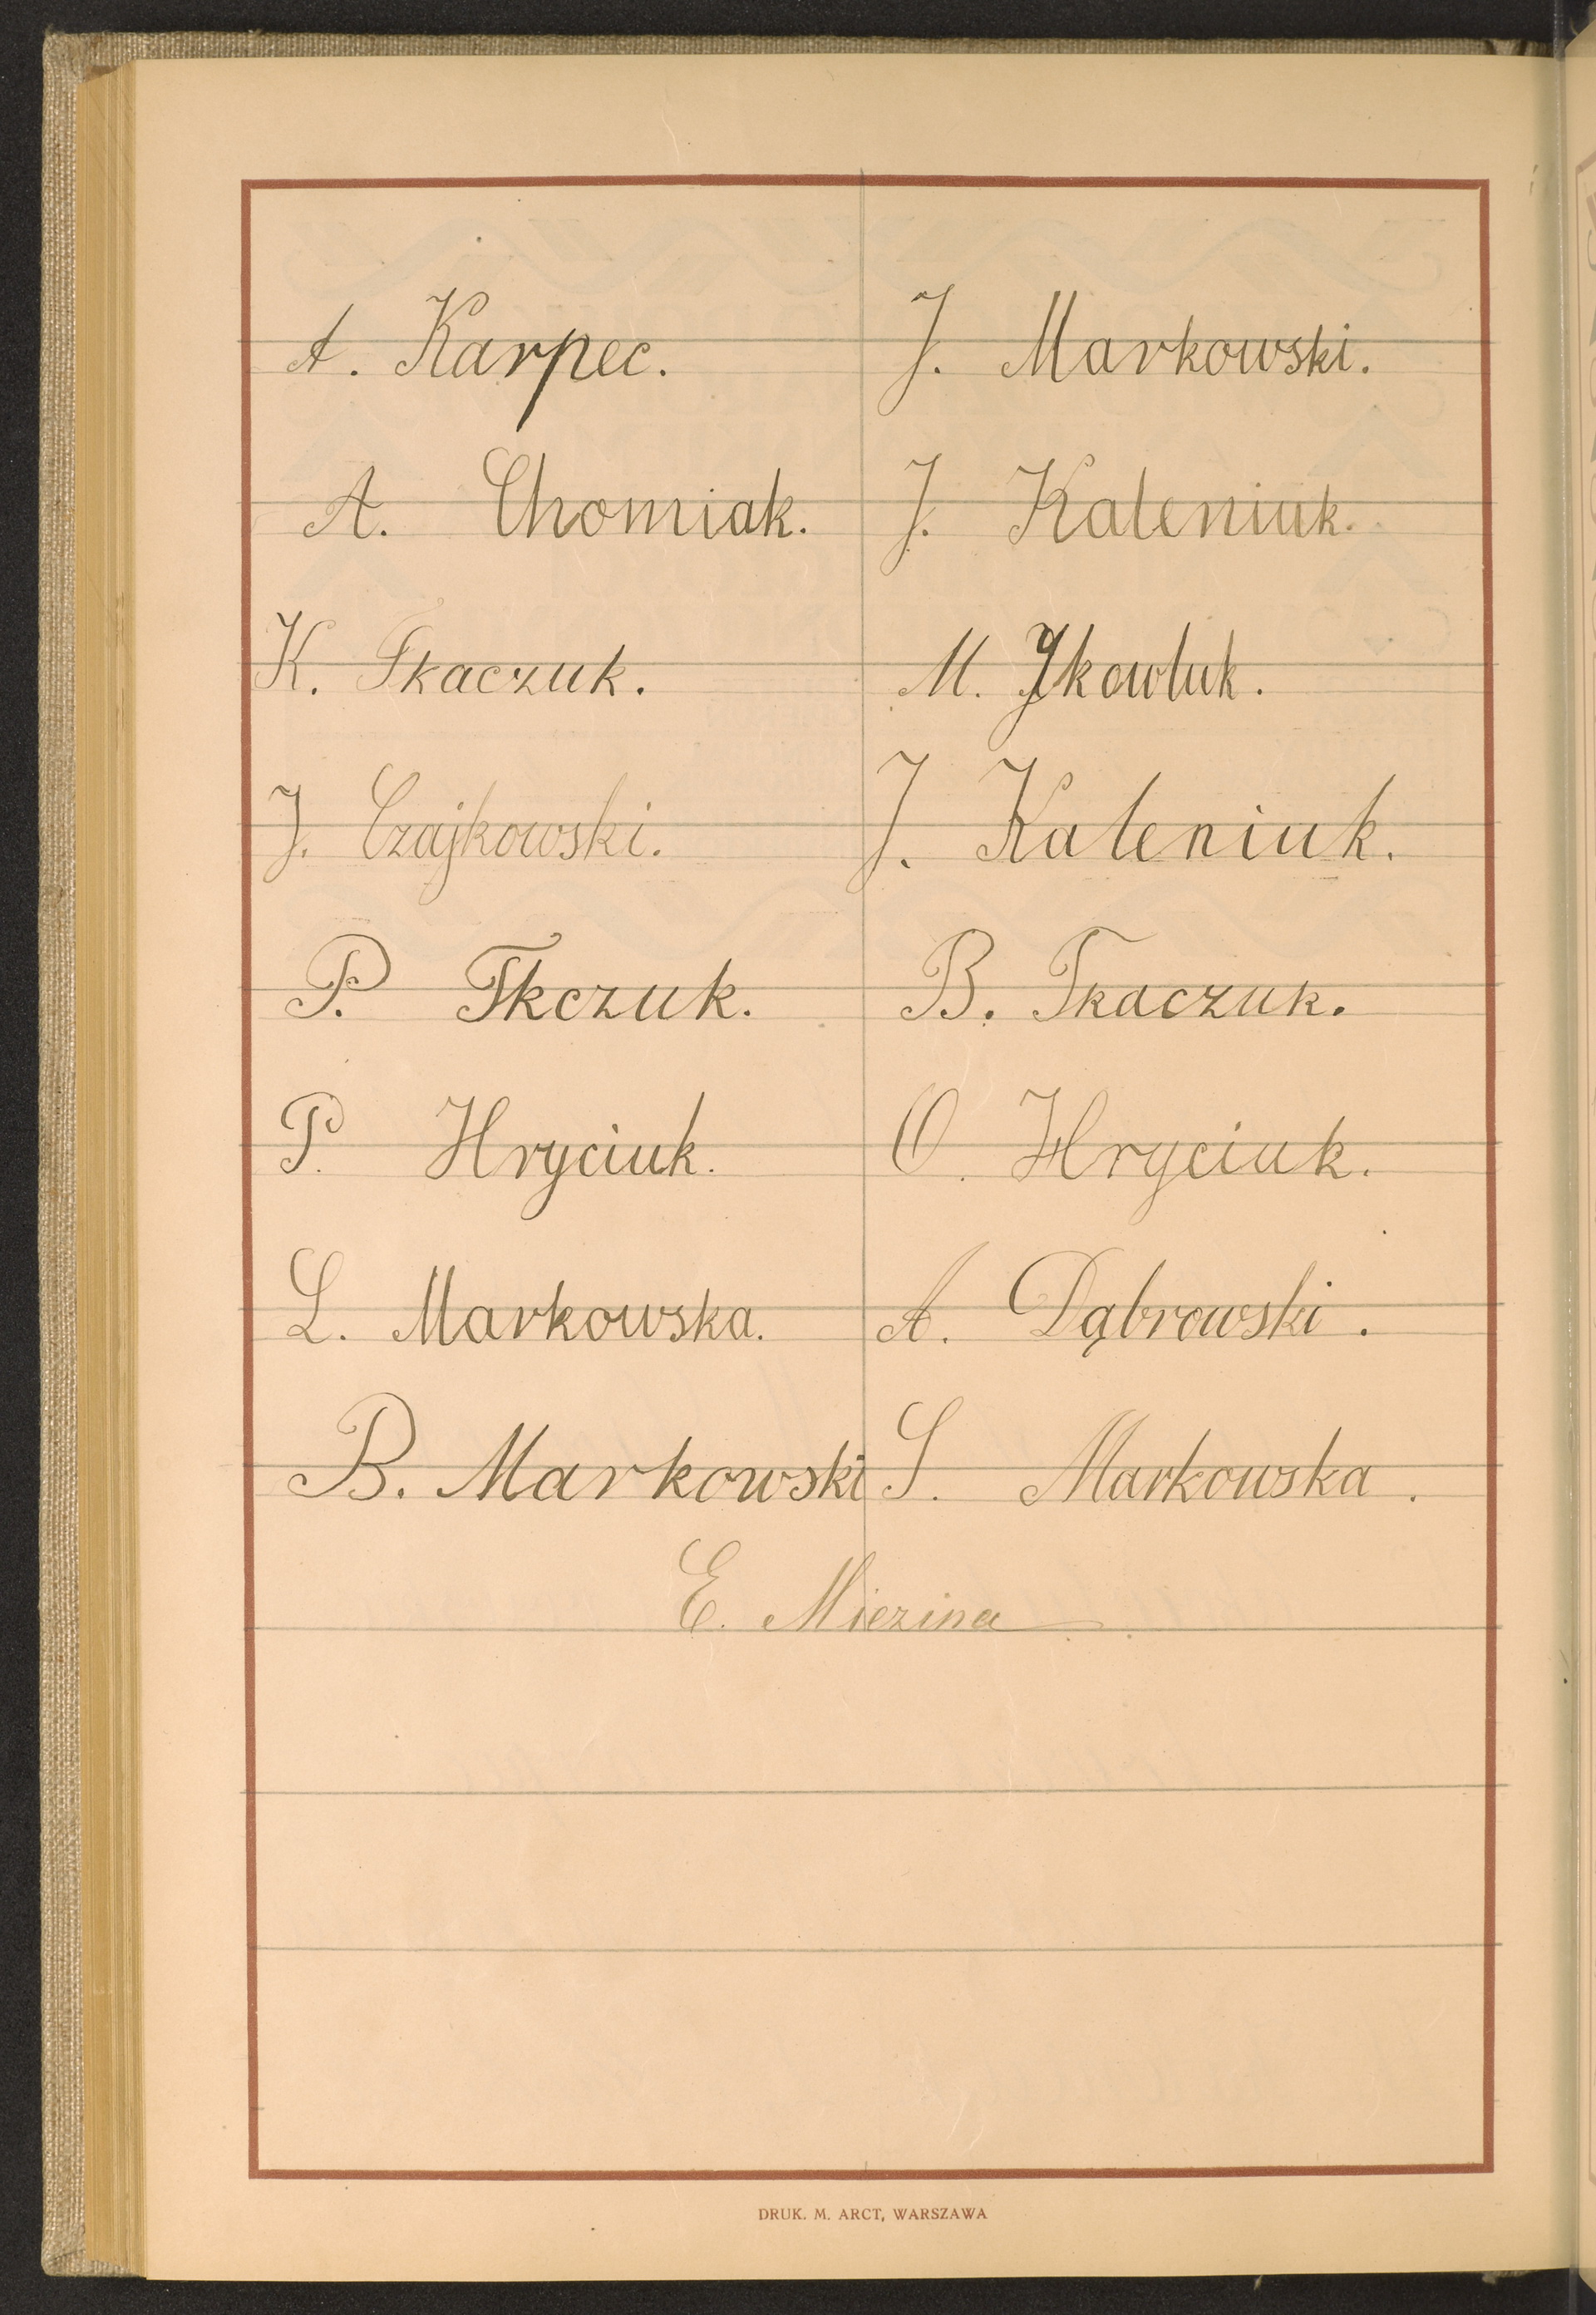 A. Karpec. J. Markowski.
A. Chomiak. J. Kaleniuk.
K. Tkaczuk. M. Jkowluk.
J. Czajkowski. J. Kaleniuk.
P. Tkczuk. B. Tkaczuk.
P. Hryciuk. O. Hryciuk.
L. Markowska. A. Dąbrowski.
B. Markowski S. Markowska.
E. Miezina
DRUK. M. ARCT, WARSZAWA